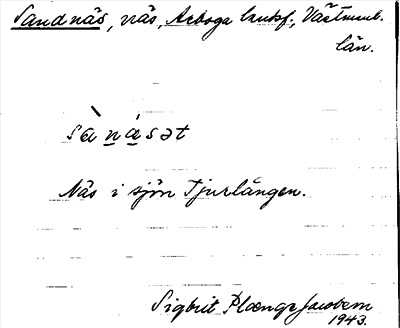 Sandnäs, näs, Arboga landsf., Västmanl.
län.
sànǽsət
Näs i sjön Tjurlången.
Sigbrit Plænge Jacobson
1943.